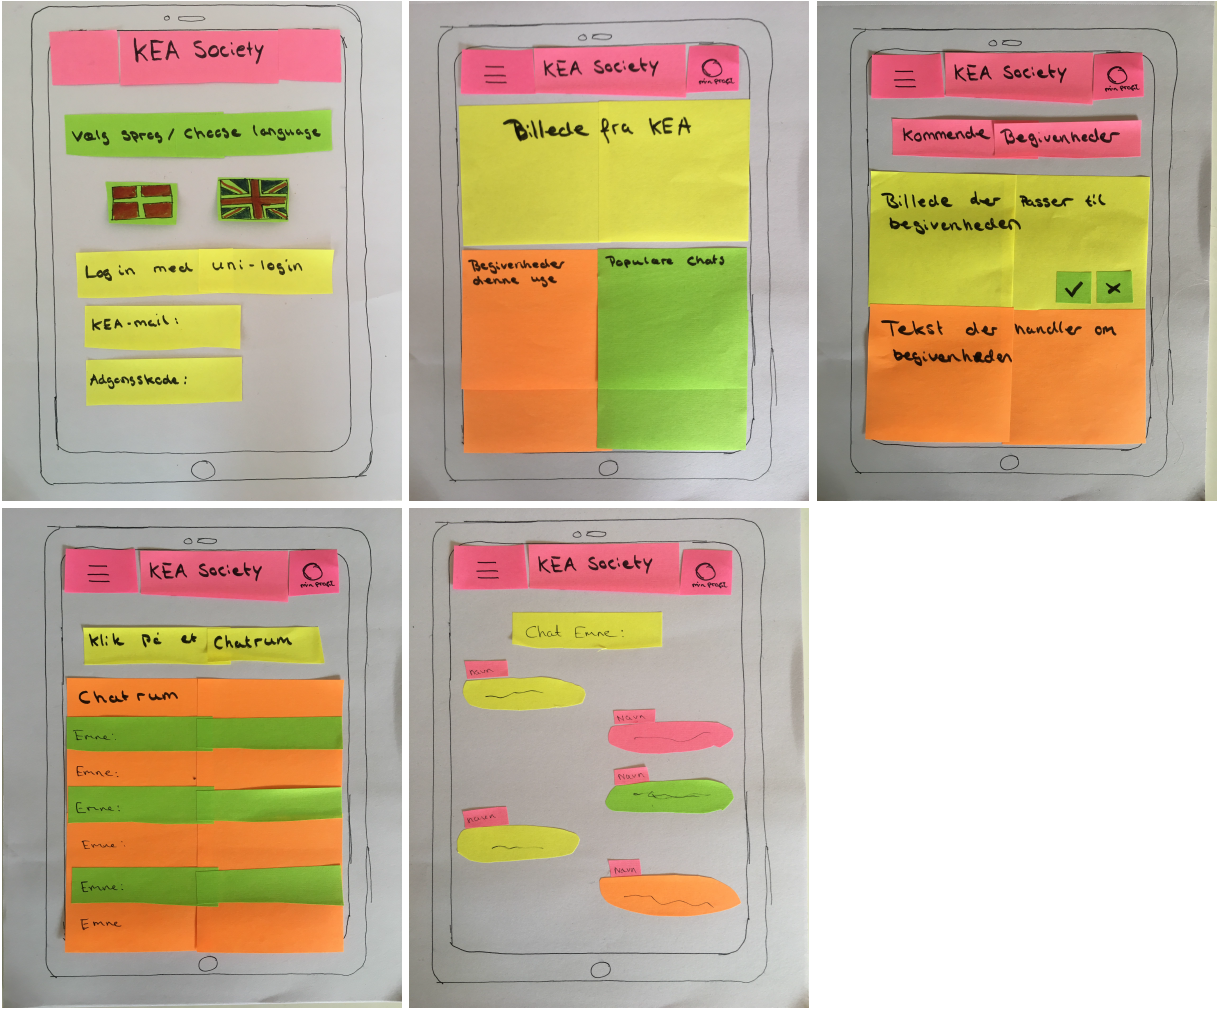 KEA Society
Vælg sprog/ Choose language
Log in med uni-login
KEA-mail:
Adgangskode:
KEA Society
min profil
Billede fra KEA
Begivenheder
denne uge
Populære Chats
KEA Society
min profil
Kommende Begivenheder
Billede der Passer til
begivenheden
Tekst der handler om
begivenheden
KEA Society
min profil
Klik På et Chatrum
Chatrum
Emne:
Emne:
Emne:
Emne:
Emne:
Emne
KEA Society
min profil
Chat Emne:
navn
Navn
Navn
navn
Navn